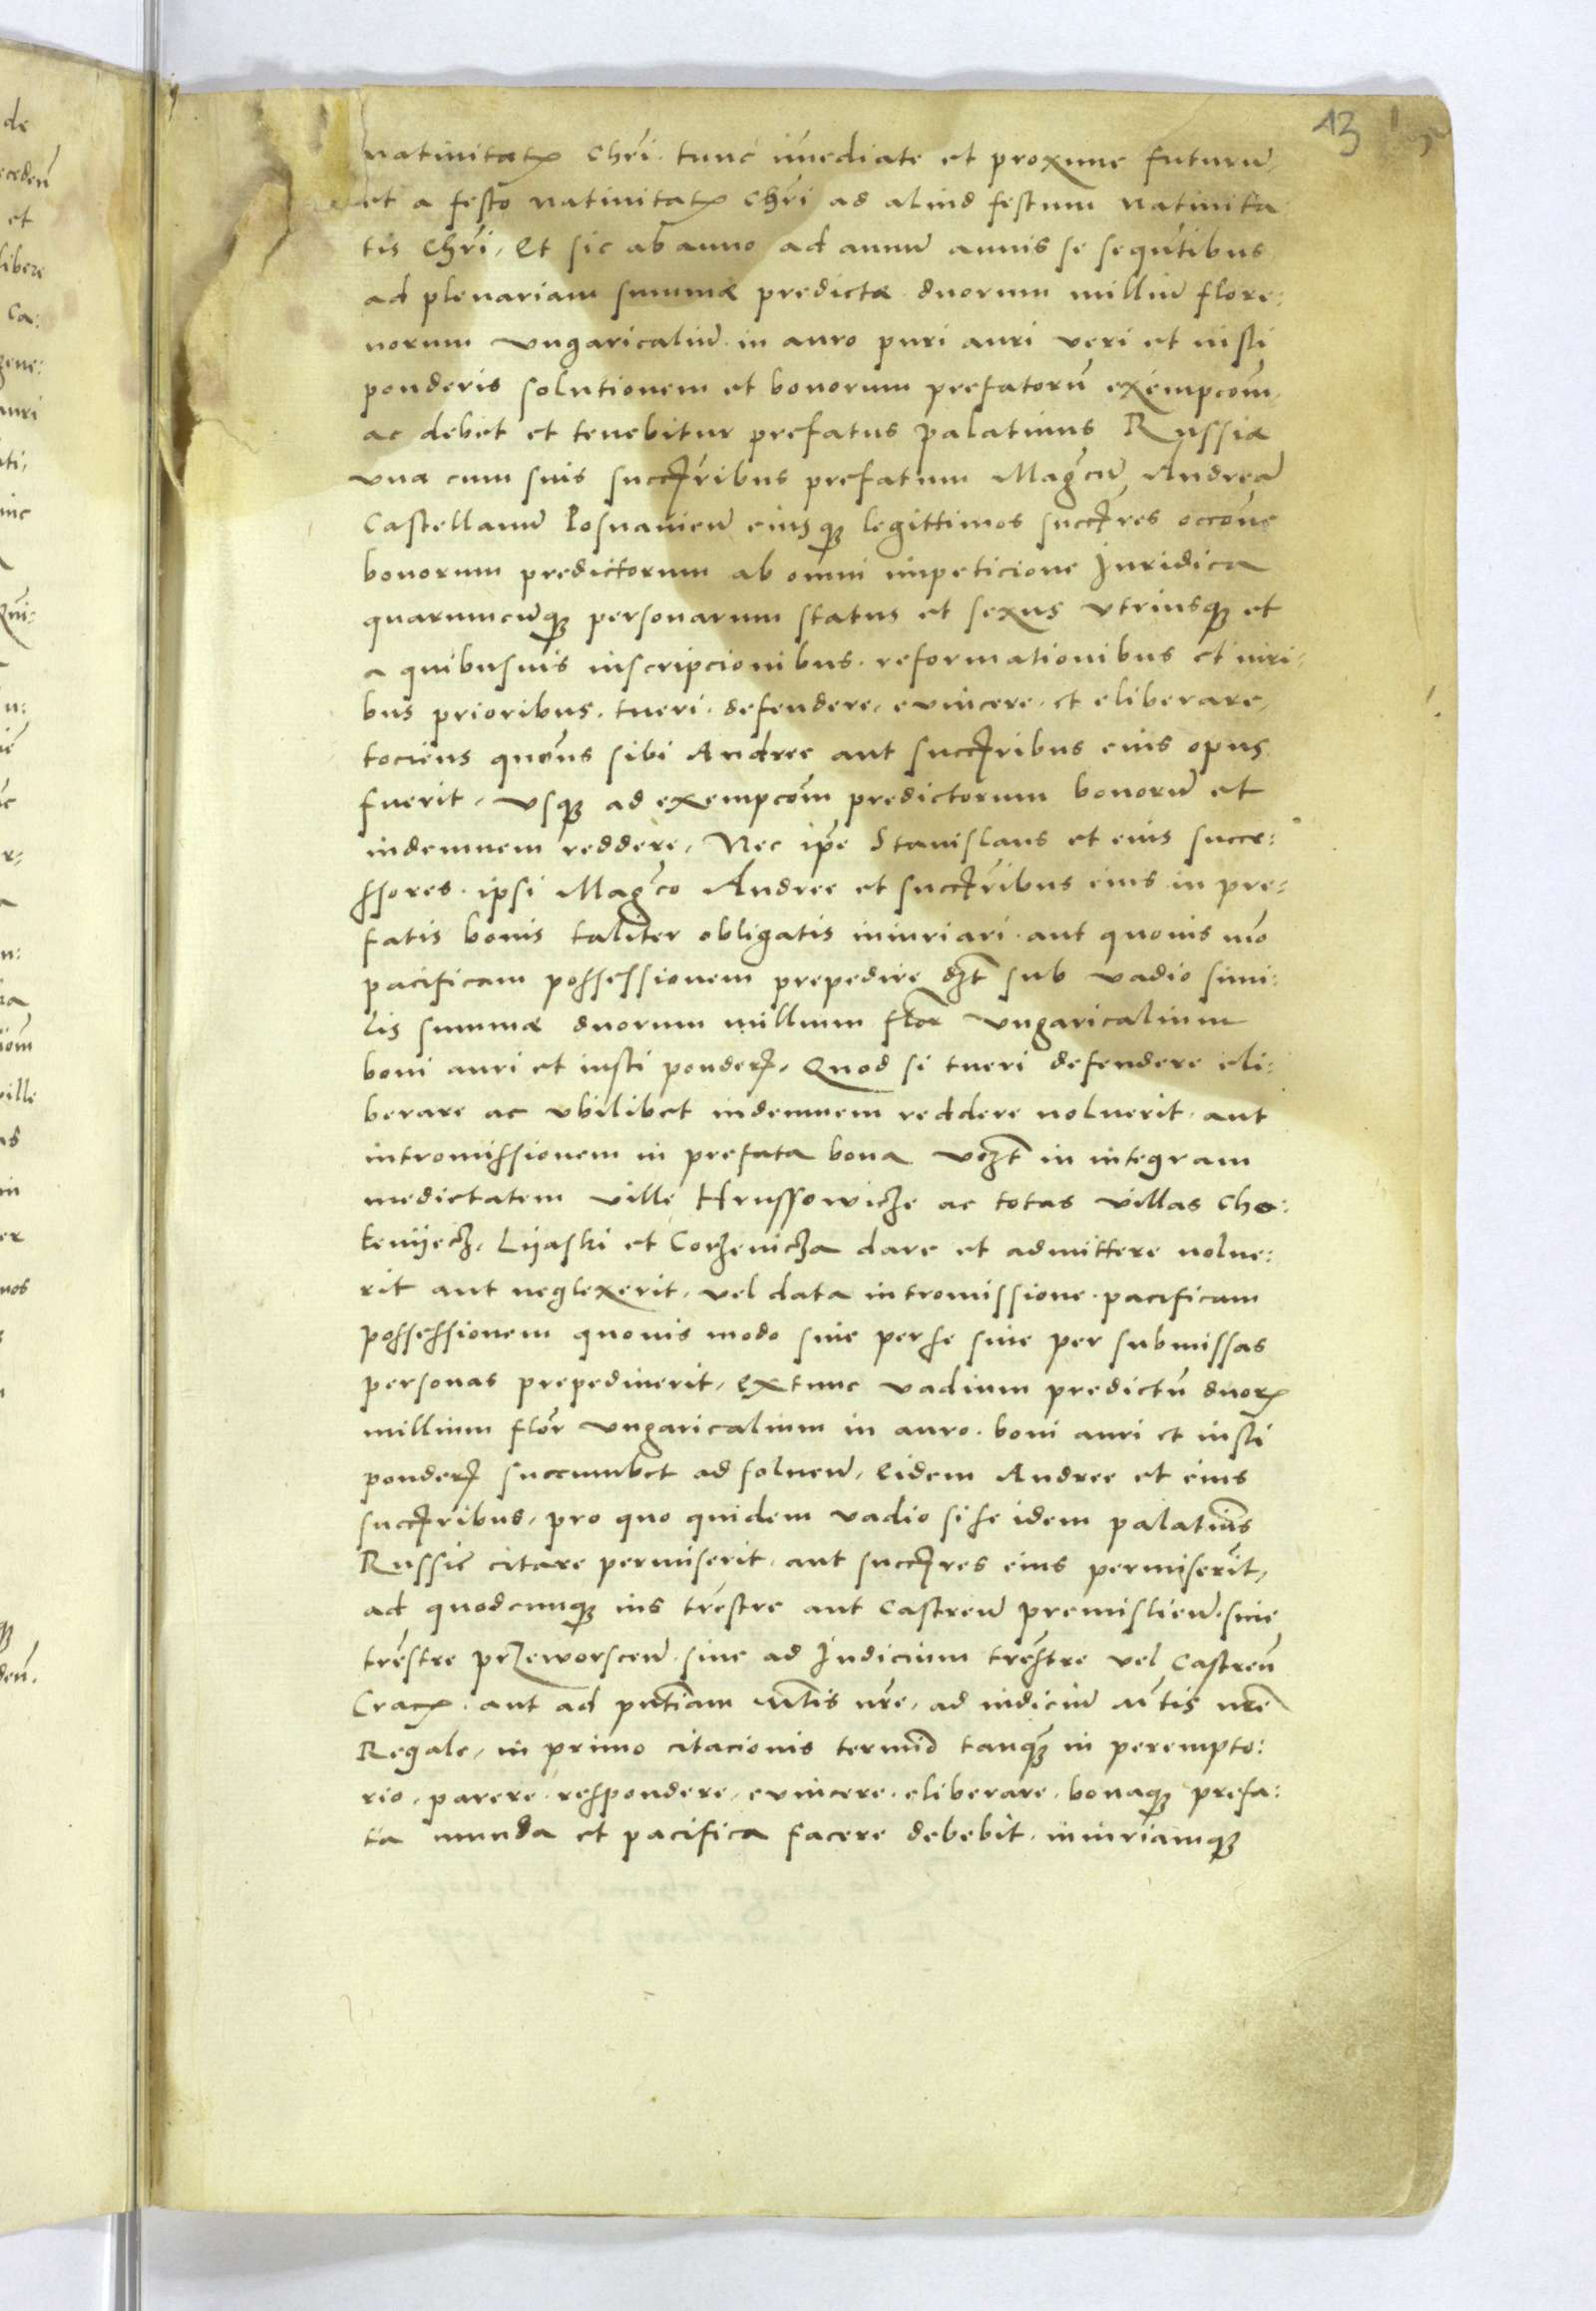 13
natiuitatꝭ Chri̅. tunc im̅ediate et proxime futuru̅,
et a festo natiuitatꝭ Chri̅ ad aliud festum natiuita
tis Chri̅, Et sic ab anno ad annu̅ annis se sequn̅tibus
ad plenariam summæ predictæ duorum milliu̅ flore:
norum vngaricaliu̅ in auro puri auri veri et iusti
ponderis solutionem et bonorum prefatoru̅ exempcom̅,
ac debet et tenebitur prefatus palatinus Russiæ
vna cum suis succꝭribus prefatum Magcu̅ Andrea̅
Castellanu̅ Posnanien̅ eiusqꝫ legittimos succꝭres occo̅ne
bonorum predictorum ab omni impeticione Juridica
quarumcu̅qꝫ personarum status et sexus vtriusqꝫ et
a quibusuis inscripcionibus. reformationibus et iuri:
bus prioribus. tueri. defendere. euincere. et eliberare,
tociens quoc̅ns sibi Andree aut succꝭribus eius opus
fuerit, vsqꝫ ad exempcom̅ predictorum bonoru̅ et
indemnem reddere, Nec ip̅e Stanislaus et eius succe:
ssores. ipsi Magco̅ Andree et succꝭribus eius in pre:
fatis bonis taliter obligatis iniuriari. aut quouis mo̅
pacificam possessionem prepedire dꝫt sub vadio simi:
lis summæ duorum millium flor̅ vngaricalium
boni auri et iusti ponderꝭ, Quod si tueri defendere eli:
berare ac vbilibet indemnem reddere noluerit. aut
intromissionem in prefata bona vꝫt in integram
medietatem ville Hrussowicze ac totas villas Cho:
tenÿecz, Lÿaski et Corzenicza dare et admittere nolue:
rit aut neglexerit, vel data intromissione. pacificam
possessionem quouis modo siue per se siue per submissas
personas prepediuerit, extunc vadium predictu̅ duorꝭ
millium flor̅ vngaricalium in auro. boni auri et iusti
ponderꝭ succumbet ad soluen̅, Eidem Andree et eius
succꝭribus, pro quo quidem vadio si se idem palatin̅s
Russie citare permiserit. aut succꝭres eius permiserit̅,
ad quodcunqꝫ ius tre̅stre aut Castren̅ premislien̅. siue
tre̅stre przeworscen̅. siue ad Judicium tre̅stre vel Castren̅
Cracꝭ. aut ad pn̅tiam Mt̅is nr̅e, ad iudiciu̅ Mt̅is nr̅e
Regale, in primo citacionis termi̅o tanqꝫ in perempto:
rio, parere. respondere, euincere. eliberare. bonaqꝫ prefa:
ta munda et pacifica facere debebit. iniuriamqꝫ